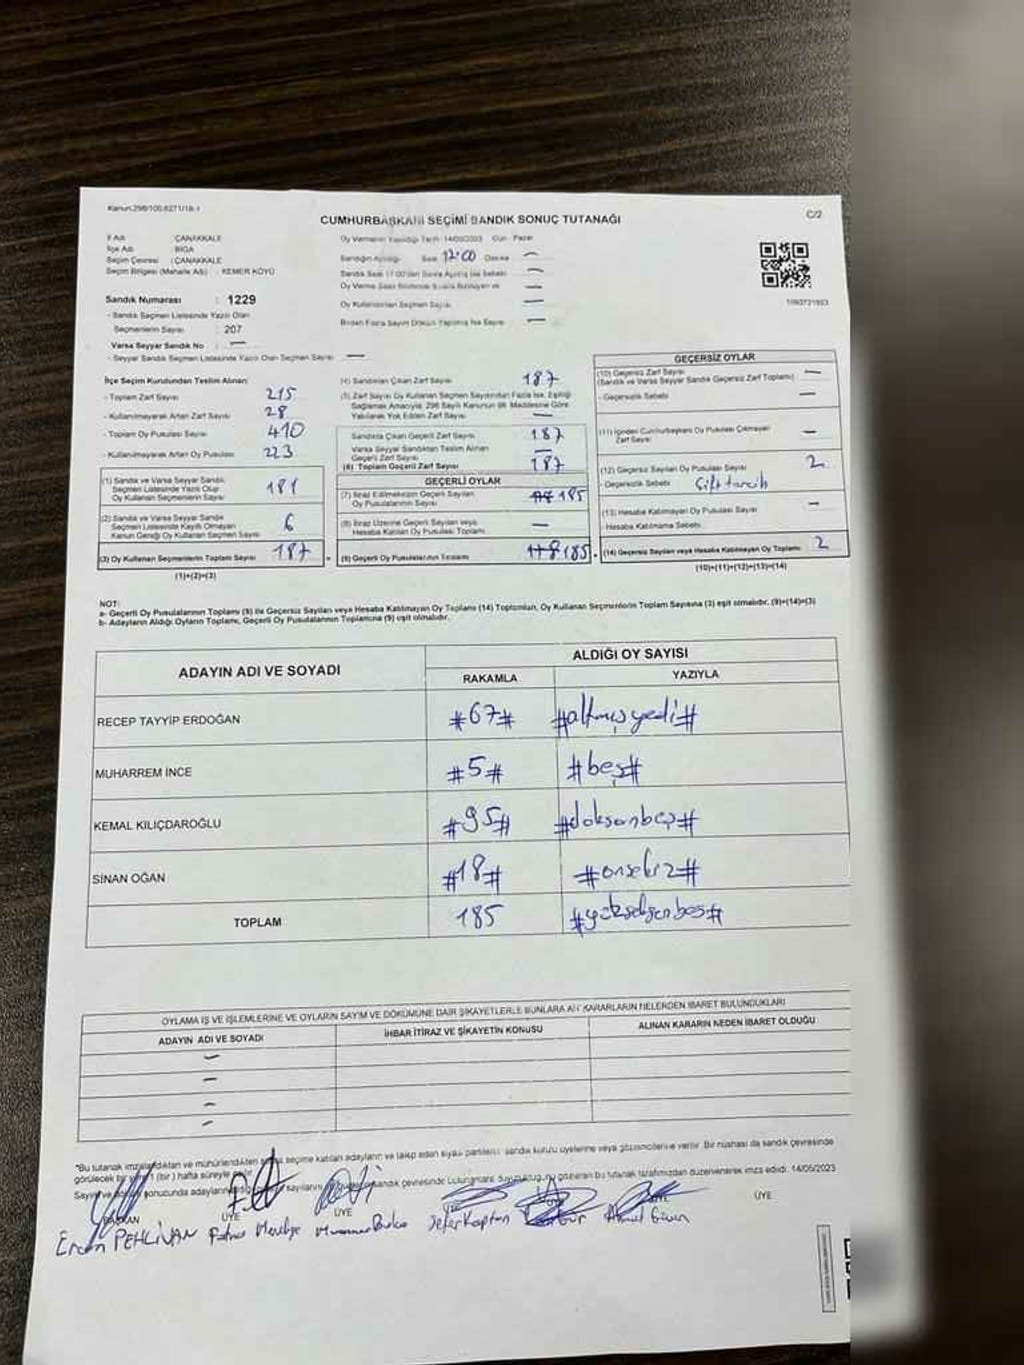 Kanun.298/100.6271/18-1
C/2
CUMHURBAŞKANI SEÇİMİ SANDIK SONUÇ TUTANAĞI
İl Adı : ÇANAKKALE
İlçe Adı : BİGA
Seçim Çevresi : ÇANAKKALE
Seçim Bölgesi (Mahalle Adı) : KEMER KÖYÜ
Sandık Numarası : 1229
- Sandık Seçmen Listesinde Yazılı Olan
Seçmenlerin Sayısı : 207
Varsa Seyyar Sandık No : —
- Seyyar Sandık Seçmen Listesinde Yazılı Olan Seçmen Sayısı : —
Oy Vermenin Yapıldığı Tarih: 14/05/2023 Gün : Pazar
Sandığın Açıldığı Saat 17:00
Oy Kullandırılan Seçmen Sayısı —
Birden Fazla Sayım Döküm Yapılmış İse Sayısı —
1093721923
İlçe Seçim Kurulundan Teslim Alınan:
- Toplam Zarf Sayısı : 215
- Kullanılmayarak Artan Zarf Sayısı : 28
- Toplam Oy Pusulası Sayısı : 410
- Kullanılmayarak Artan Oy Pusulası : 223
(1) Sandık ve Varsa Seyyar Sandık
Seçmen Listesinde Yazılı Olup
Oy Kullanan Seçmenlerin Sayısı 181
(2) Sandık ve Varsa Seyyar Sandık
Seçmen Listesinde Kayıtlı Olmayan
Kanun Gereği Oy Kullanan Seçmen Sayısı 6
(3) Oy Kullanan Seçmenlerin Toplam Sayısı 187
(1)+(2)=(3)
(4) Sandıktan Çıkan Zarf Sayısı 187
(5) Zarf Sayısı Oy Kullanan Seçmen Sayısından Fazla İse, Eşitliği
Sağlamak Amacıyla, 298 Sayılı Kanunun 98. Maddesine Göre
Yakılarak Yok Edilen Zarf Sayısı —
Sandıkta Çıkan Geçerli Zarf Sayısı 187
Varsa Seyyar Sandıktan Teslim Alınan
Geçerli Zarf Sayısı —
(6) Toplam Geçerli Zarf Sayısı 187
GEÇERLİ OYLAR
(7) İtiraz Edilmeksizin Geçerli Sayılan
Oy Pusulalarının Sayısı 185
(8) İtiraz Üzerine Geçerli Sayılan veya
Hesaba Katılan Oy Pusulası Toplamı —
(9) Geçerli Oy Pusulalarının Toplamı 185
GEÇERSİZ OYLAR
(10) Geçersiz Zarf Sayısı —
(Sandık ve Varsa Seyyar Sandık Geçersiz Zarf Toplamı)
- Geçersizlik Sebebi —
(11) İçinden Cumhurbaşkanı Oy Pusulası Çıkmayan
Zarf Sayısı —
(12) Geçersiz Sayılan Oy Pusulası Sayısı 2
- Geçersizlik Sebebi Çift tercih
(13) Hesaba Katılmayan Oy Pusulası Sayısı —
- Hesaba Katılmama Sebebi
(14) Geçersiz Sayılan veya Hesaba Katılmayan Oy Toplamı 2
(10)+(11)+(12)+(13)=(14)
NOT:
a- Geçerli Oy Pusulalarının Toplamı (9) ile Geçersiz Sayılan veya Hesaba Katılmayan Oy Toplamı (14) Toplamları, Oy Kullanan Seçmenlerin Toplam Sayısına (3) eşit olmalıdır. (9)+(14)=(3)
b- Adayların Aldığı Oyların Toplamı, Geçerli Oy Pusulalarının Toplamına (9) eşit olmalıdır.
ADAYIN ADI VE SOYADI
ALDIĞI OY SAYISI
RAKAMLA YAZIYLA
RECEP TAYYİP ERDOĞAN #67# #altmışyedi#
MUHARREM İNCE #5# #beş#
KEMAL KILIÇDAROĞLU #95# #doksanbeş#
SİNAN OĞAN #18# #onsekiz#
TOPLAM 185 #yüzseksenbeş#
OYLAMA İŞ VE İŞLEMLERİNE VE OYLARIN SAYIM VE DÖKÜMÜNE DAİR ŞİKAYETLERLE BUNLARA AİT KARARLARIN NELERDEN İBARET BULUNDUKLARI
ADAYIN ADI VE SOYADI İHBAR İTİRAZ VE ŞİKAYETİN KONUSU ALINAN KARARIN NEDEN İBARET OLDUĞU
—
—
—
—
*Bu tutanak imzalandıktan ve mühürlendikten sonra seçime katılan adayların ve talep eden siyasi partilerin sandık kurulu üyelerine veya gözlemcilerine verilir. Bir nüshası da sandık çevresinde
14/05/2023
BAŞKAN ÜYE ÜYE ÜYE
Ercan PEHLİVAN Sefer Kaptan Ahmet Güven